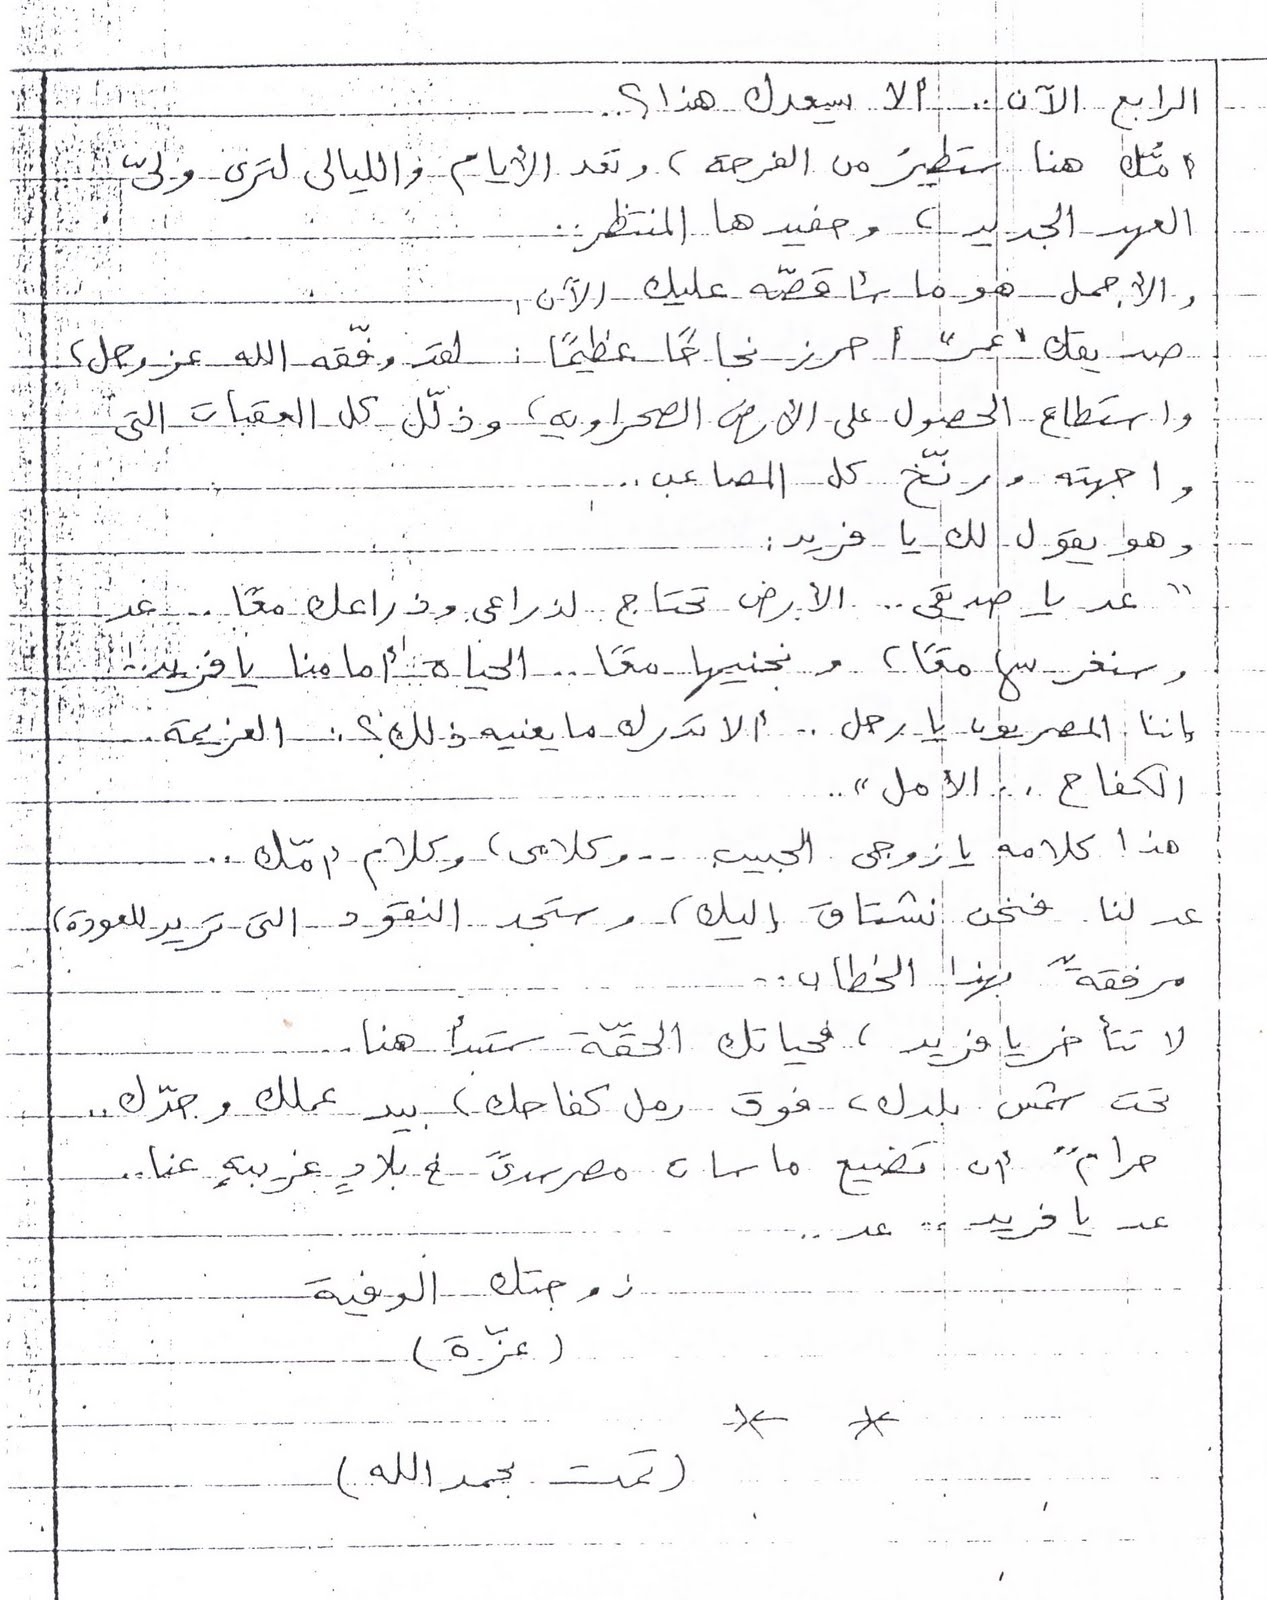 الرابع الآن .. ألا يسعدك هذا ؟ ..
أمُّك هنا ستطيرُ من الفرحة ، وتعد الأيام والليالى لترى ولىّ
العهد الجديد ، وحفيدها المنتظر ..
والأجمل هو ما سأقصّه عليك الآن ،
صديقك "عمر" أحرز نجاحًا عظيمًا : لقد وفّقه الله عز وجل ،
واستطاع الحصول على الأرض الصحراوية ، وذلّل كل العقبات التى
واجهته ورنّخ كل المصاعب ..
وهو يقول لك يا فريد :
" عد يا صديقى .. الأرض تحتاج لذراعى وذراعك معًا .. عد
وسنغرسها معًا ، ونجنيها معًا .. الحياة أمامنا يا فريد ..
إننا المصريون يا رجل .. ألا تدرك ما يعنيه ذلك ؟ .. العزيمة ..
الكفاح .. الأمل " ..
هذا كلامه يا زوجى الحبيب .. وكلامى ، وكلام أمّك ..
عد لنا فنحن نشتاق إليك ، وستجد النقود التى تريد للعودة ،
مرفقةً بهذا الخطاب ..
لا تتأخر يا فريد ، فحياتك الحقّة ستبدأ هنا ..
تحت شمس بلدك ، فوق رمل كفاحك ، بيد عملك وجدّك ..
حرامٌ أن تضيع ماسات مصر سدىً فى بلادٍ غريبةٍ عنا ..
عد يا فريد .. عد ..
زوجتك الوفية
( عزّة )
* *
( تمت بحمد الله )